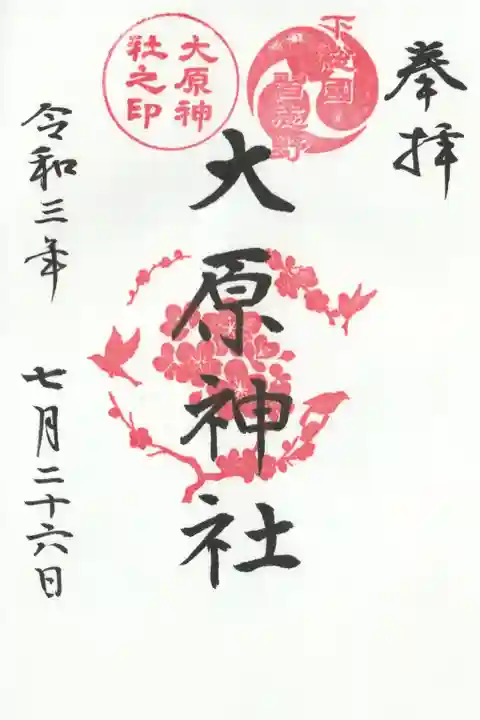 奉拝
下総國
習志野
大原神社
大原神
社之印
令和三年 七月二十六日